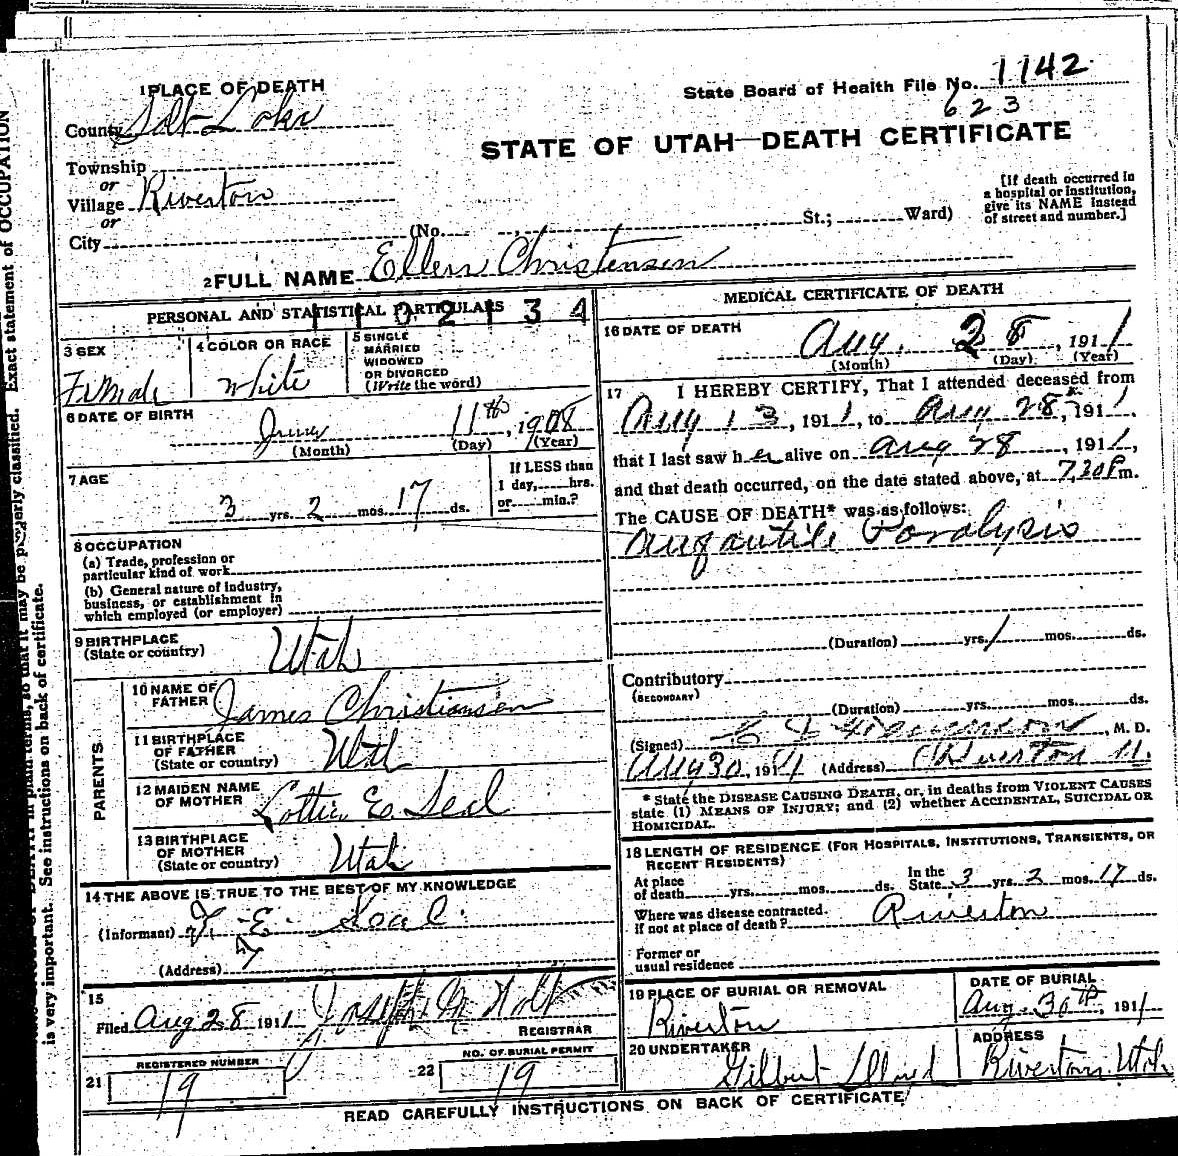 1 PLACE OF DEATH
County Salt Lake
Township
or
Village Riverton
or
City (No. , St.; Ward)
State Board of Health File No. 1142
623
STATE OF UTAH—DEATH CERTIFICATE
[If death occurred in
a hospital or institution,
give its NAME instead
of street and number.]
2 FULL NAME Ellen Christensen
PERSONAL AND STATISTICAL PARTICULARS
1102134
3 SEX
Female
4 COLOR OR RACE
White
5 SINGLE
MARRIED
WIDOWED
OR DIVORCED
(Write the word)
6 DATE OF BIRTH
June 11th, 1908
(Month) (Day) (Year)
7 AGE
3 yrs. 2 mos. 17 ds.
If LESS than
1 day, hrs.
or min.?
8 OCCUPATION
(a) Trade, profession or
particular kind of work
(b) General nature of industry,
business, or establishment in
which employed (or employer)
9 BIRTHPLACE
(State or country) Utah
PARENTS
10 NAME OF
FATHER James Christiansen
11 BIRTHPLACE
OF FATHER
(State or country) Utah
12 MAIDEN NAME
OF MOTHER Lottie E. Seal
13 BIRTHPLACE
OF MOTHER
(State or country) Utah
14 THE ABOVE IS TRUE TO THE BEST OF MY KNOWLEDGE
(Informant)
(Address)
15
Filed Aug 28 1911 Joseph Holt
REGISTRAR
21 REGISTERED NUMBER
19
22 NO. OF BURIAL PERMIT
19
MEDICAL CERTIFICATE OF DEATH
16 DATE OF DEATH
Aug. 28, 1911
(Month) (Day) (Year)
17 I HEREBY CERTIFY, That I attended deceased from
Aug 13, 1911, to Aug 28, 1911,
that I last saw her alive on Aug 28, 1911,
and that death occurred, on the date stated above, at 7.30 P m.
The CAUSE OF DEATH* was as follows:
Infantile Paralysis
(Duration) yrs. mos. ds.
Contributory
(SECONDARY)
(Duration) yrs. mos. ds.
(Signed) , M. D.
Aug 30, 1911 (Address) Riverton U.
* State the DISEASE CAUSING DEATH, or, in deaths from VIOLENT CAUSES
state (1) MEANS OF INJURY; and (2) whether ACCIDENTAL, SUICIDAL OR
HOMICIDAL.
18 LENGTH OF RESIDENCE (FOR HOSPITALS, INSTITUTIONS, TRANSIENTS, OR
RECENT RESIDENTS)
At place
of death yrs. mos. ds.
In the
State 3 yrs. 2 mos. 17 ds.
Where was disease contracted.
if not at place of death? Riverton
Former or
usual residence
19 PLACE OF BURIAL OR REMOVAL
Riverton
DATE OF BURIAL
Aug. 30th, 1911
20 UNDERTAKER
Gilbert Lloyd
ADDRESS
Riverton, Utah
READ CAREFULLY INSTRUCTIONS ON BACK OF CERTIFICATE
properly classified. Exact statement of OCCUPATION
is very important. See instructions on back of certificate.